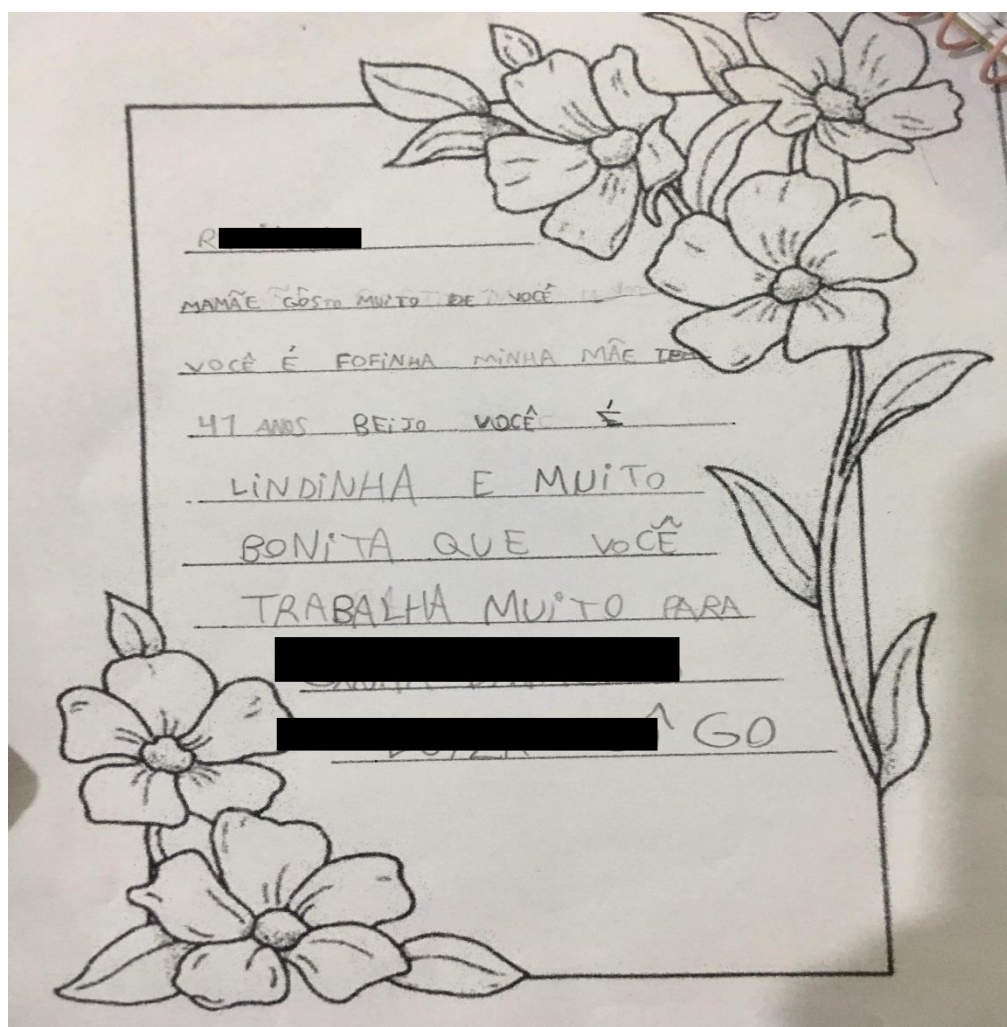 R
MAMÃE GOSTO MUITO DE VOCÊ
VOCÊ É FOFINHA MINHA MÃE TEM
41 ANOS BEIJO VOCÊ É
LINDINHA E MUITO
BONITA QUE VOCÊ
TRABALHA MUITO PARA
GO